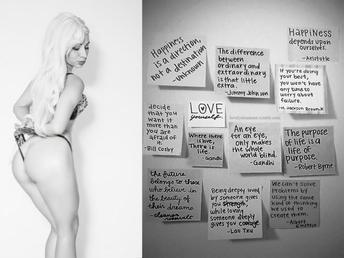 Happiness
is a direction,
not a destination
-Unknown
The difference
between
ordinary and
extraordinary
is that little
extra.
-Jimmy Johnson
Happiness
depends upon
ourselves.
-Aristotle
If you're doing
your best,
you won't have
any time to
worry about
failure.
H. Jackson Brown Jr.
decide
that you
want it
more than
you are
afraid of
it.
-Bill Cosby
LOVE
yourself
Where there
is love,
There is
life.
-Gandhi
An eye
for an eye,
only makes
the whole
world blind.
-Gandhi
The purpose
of life is a
life of
purpose.
-Robert Byrne
the future
belongs to those
who believe in
the beauty of
their dreams.
-eleanor
roosevelt
Being deeply loved
by someone gives
you strength,
while loving
someone deeply
gives you courage.
-Lao Tzu
We can't solve
problems by
using the same
kind of thinking
we used to
create them.
-Albert
Einstein